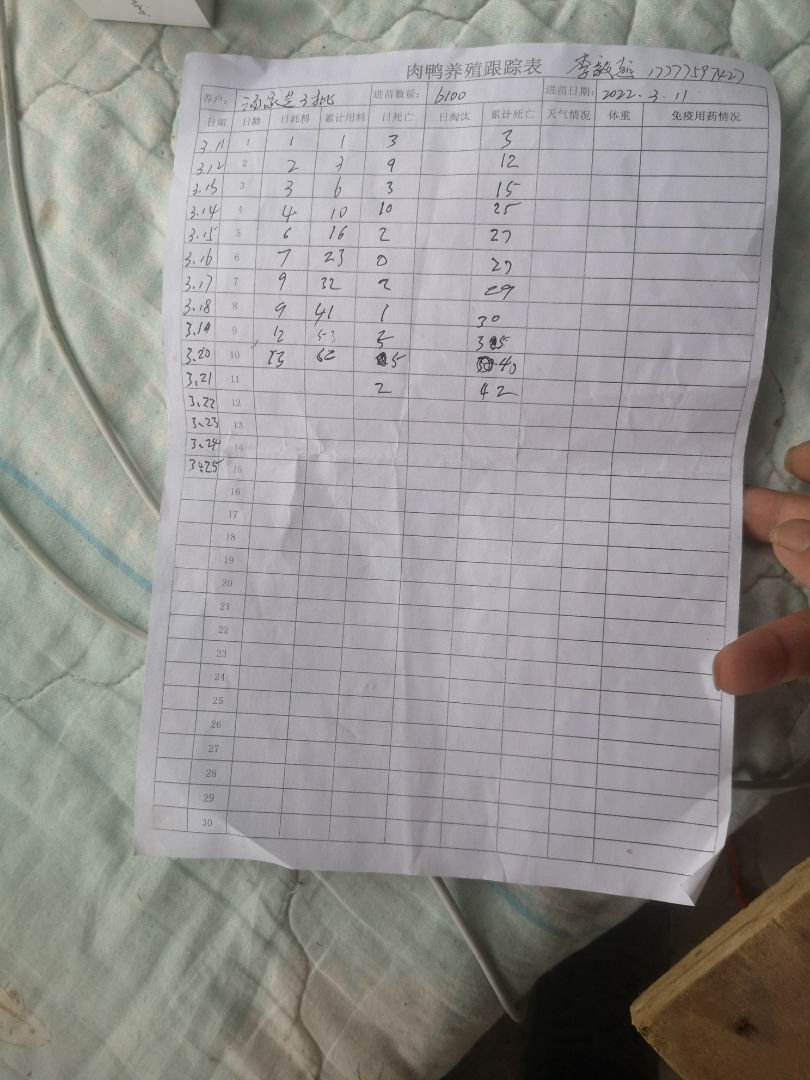 肉鸭养殖跟踪表 李
养户： 批 进苗数量： 6100 进苗日期： 2022.3.11
日期 日龄 日耗料 累计用料 日死亡 日淘汰 累计死亡 天气情况 体重 免疫用药情况
3.11 1 1 1 3 3
3.12 2 2 3 9 12
3.13 3 3 6 3 15
3.14 4 4 10 10 25
3.15 5 6 16 2 27
3.16 6 7 23 0 27
3.17 7 9 32 2 29
3.18 8 9 41 1 30
3.19 9 12 53 5 35
3.20 10 13 62 5 40
3.21 11 2 42
3.22 12
3.23 13
3.24 14
3.25 15
16
17
18
19
20
21
22
23
24
25
26
27
28
29
30